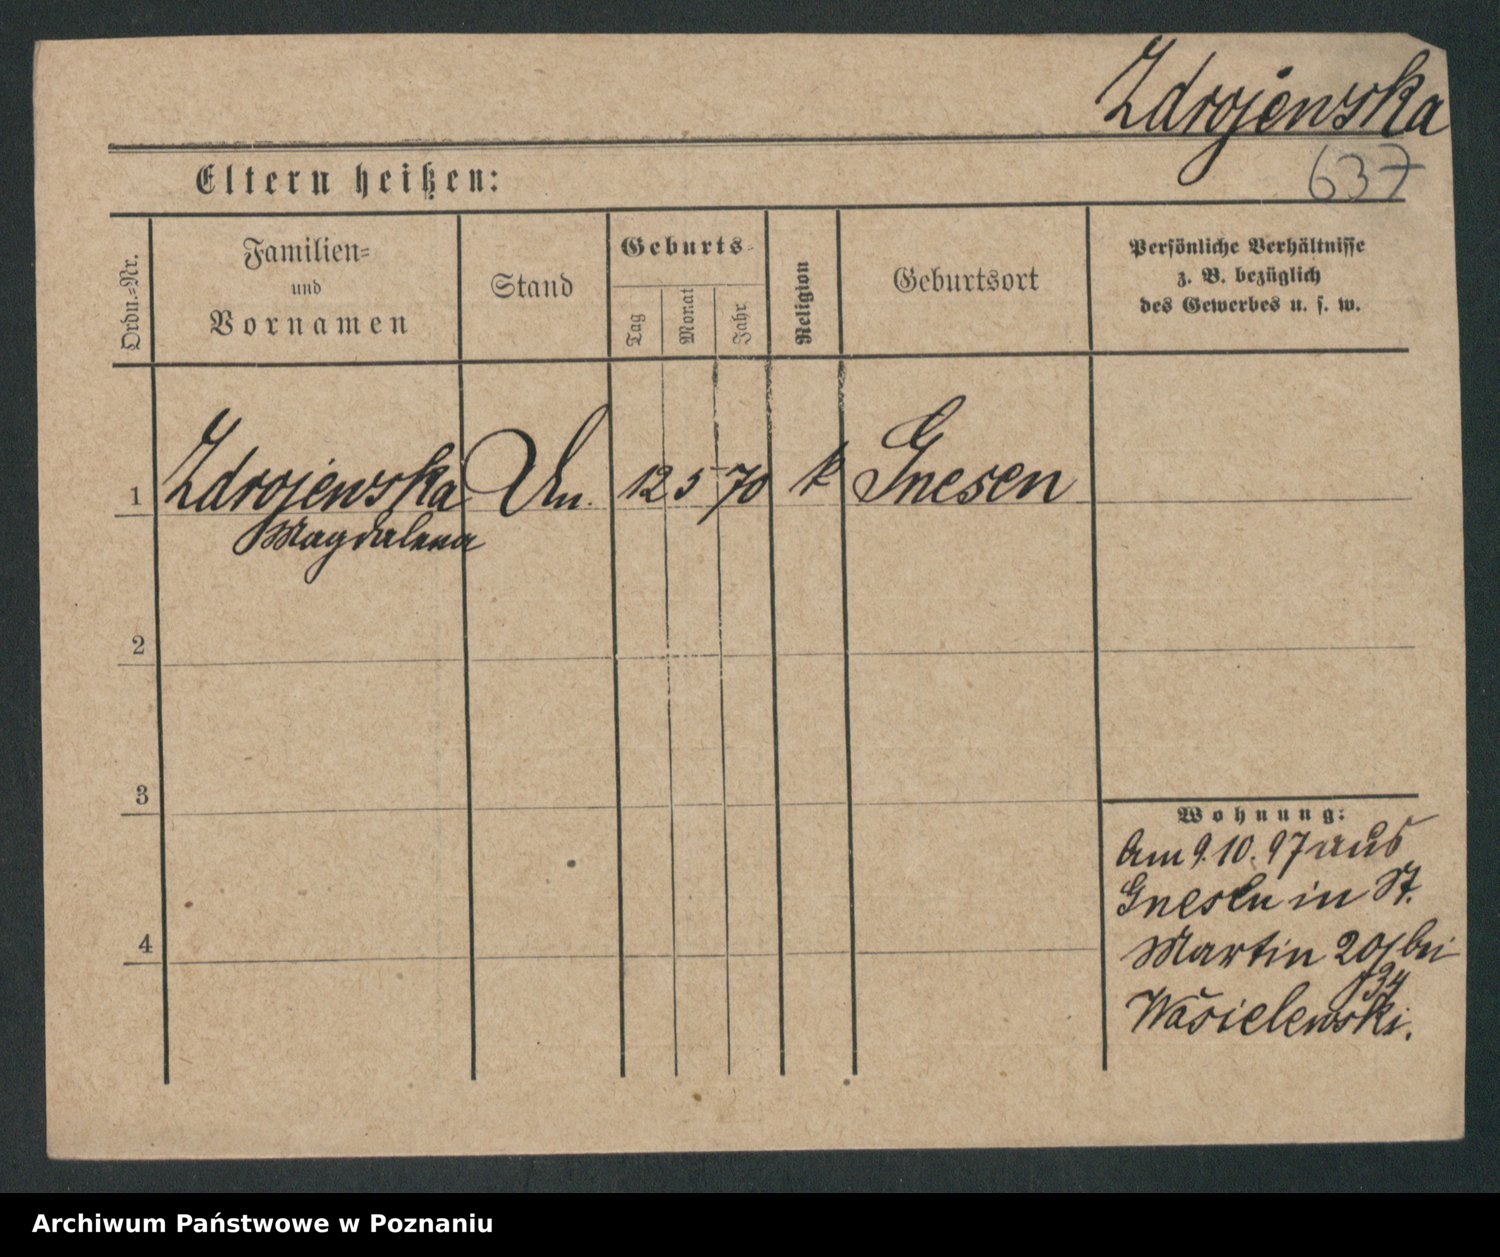 Zdrojewska
637
Eltern heißen:
Ordn.-Nr.
Familien-
und
Vornamen
Stand
Geburts-
Tag
Monat
Jahr
Religion
Geburtsort
Persönliche Verhältnisse
z. B. bezüglich
des Gewerbes u. s. w.
1
Zdrojewska
Magdalena
12 5 70 k Gnesen
2
3
4
Wohnung:
Am 9.10.97 aus
Gnesen in St.
Martin 20/ bei
Wasielewski.
Archiwum Państwowe w Poznaniu